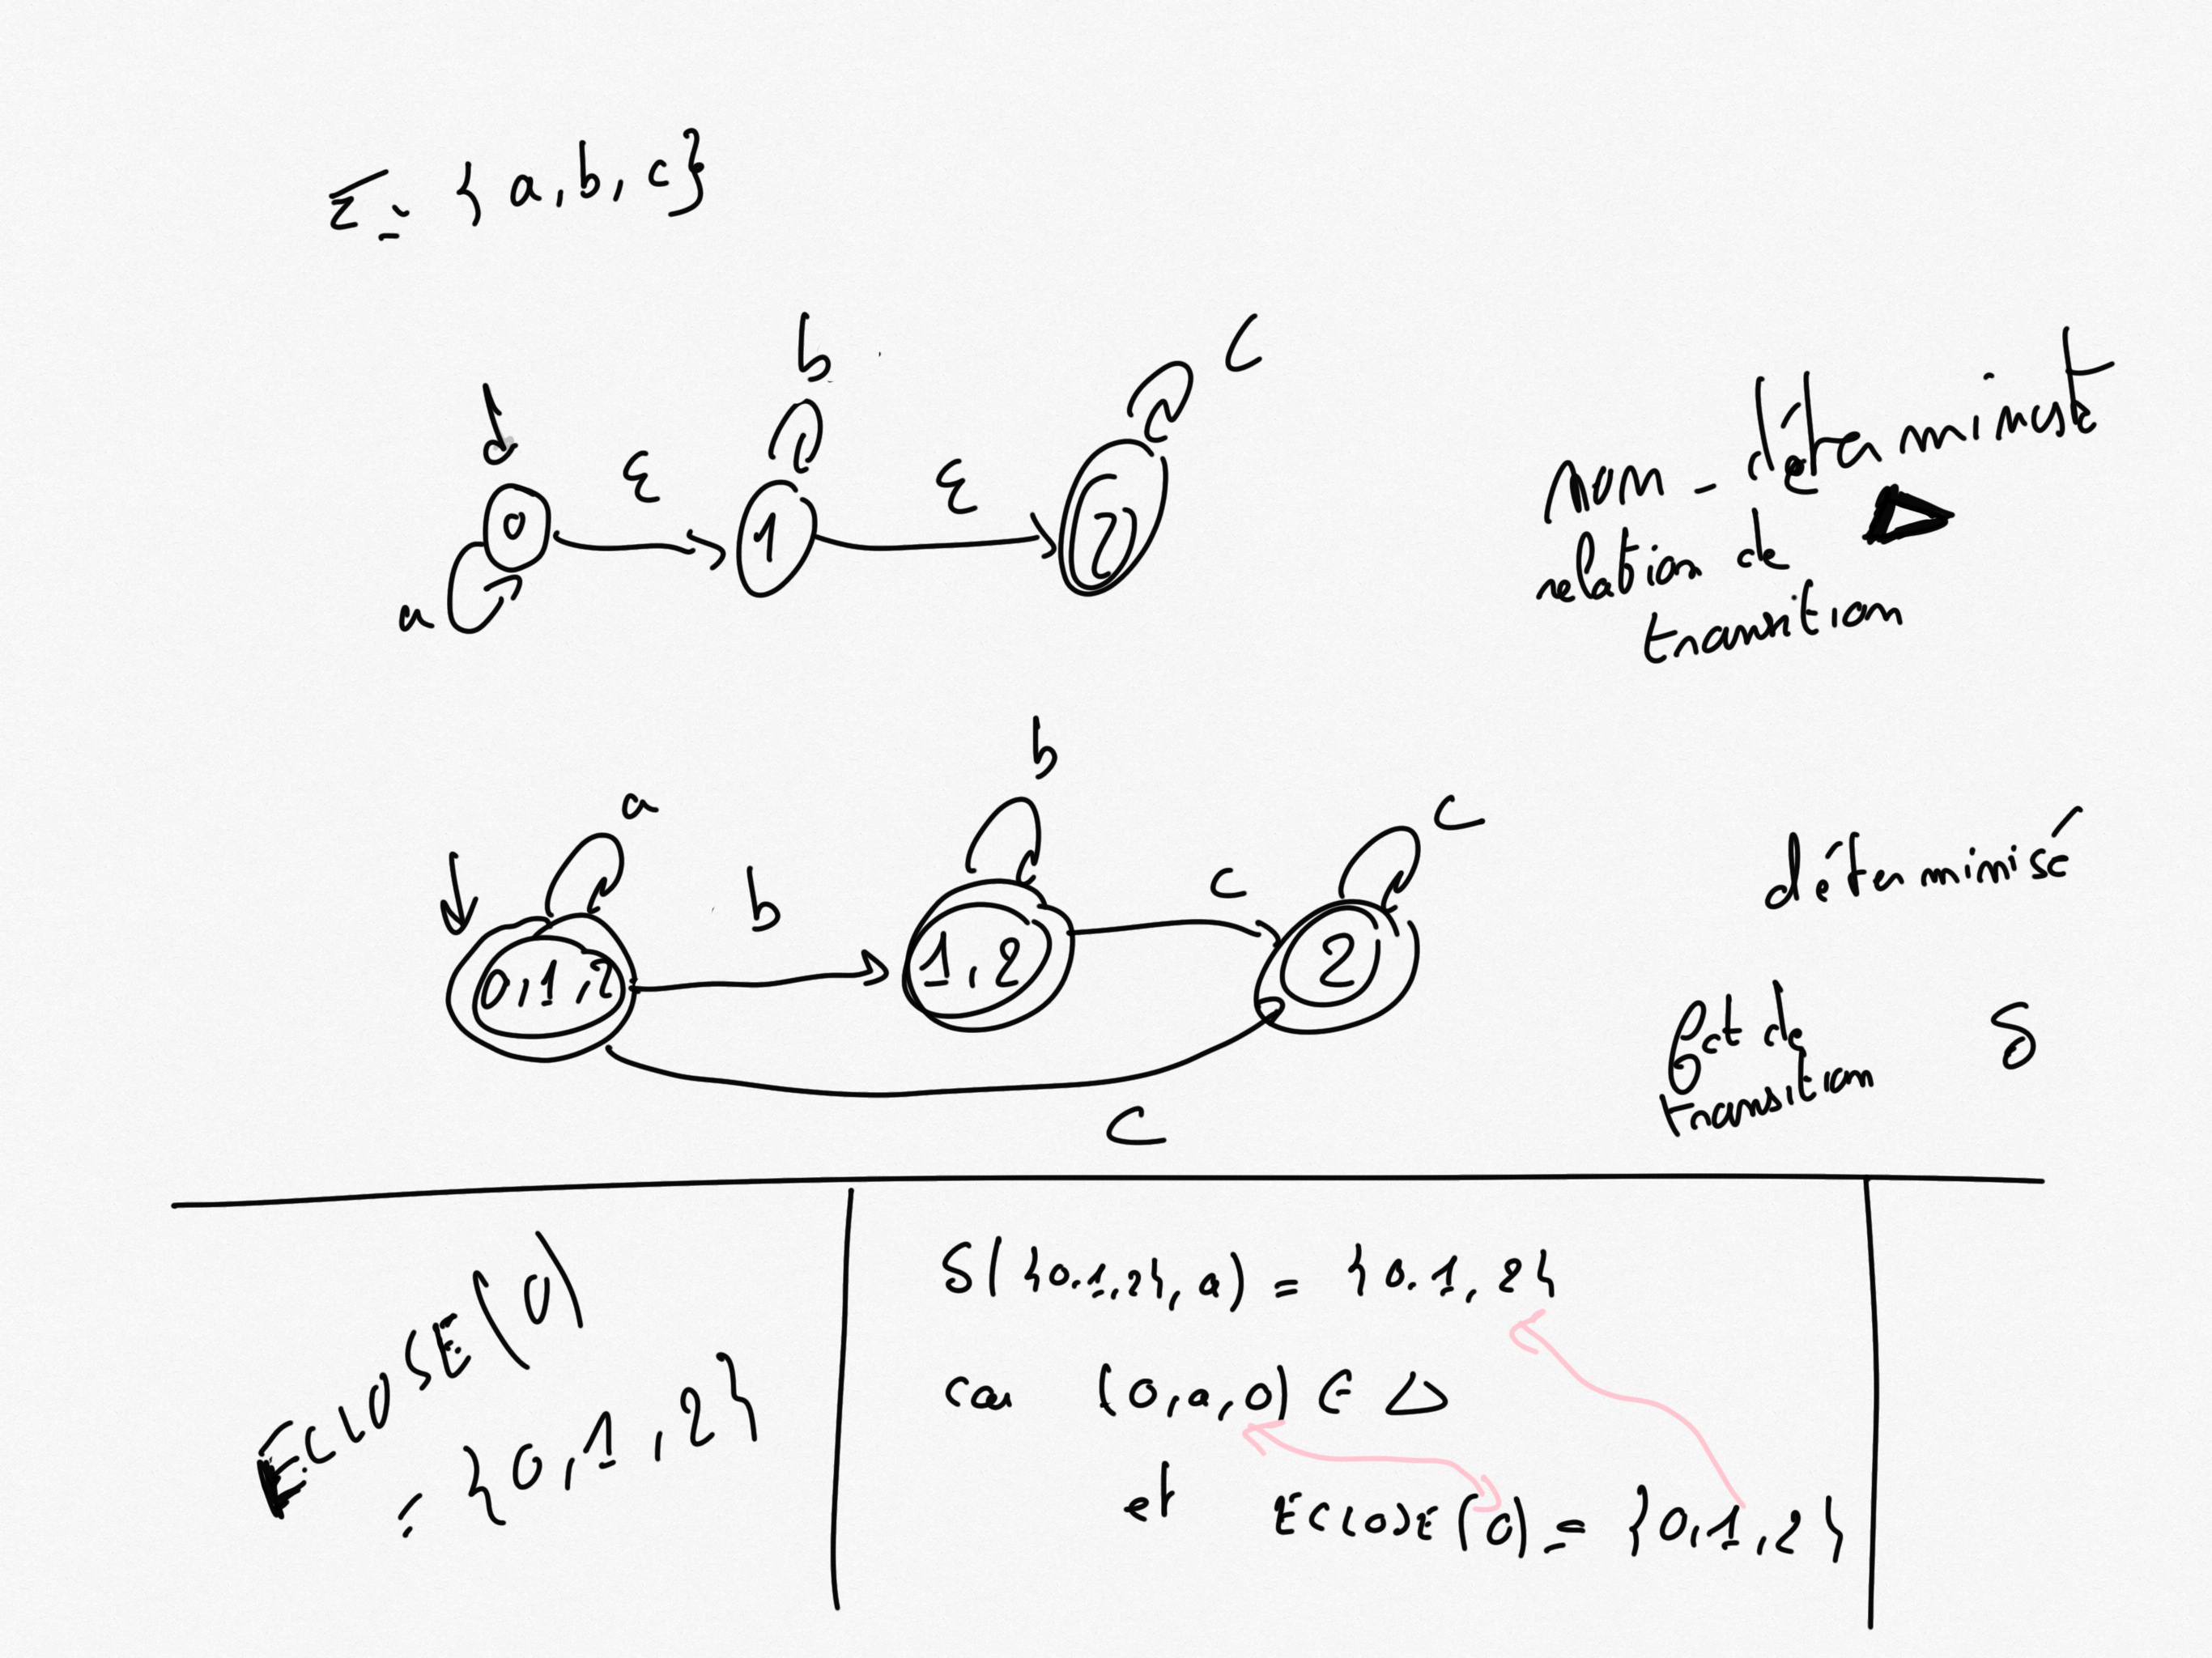 Σ = {a, b, c}
b
c
ε
ε
0
1
2
a
non-déterminist
relation de Δ
transition
b
a
c
b
c
0,1,2
1,2
2
c
déterminisé
fct de δ
transition
ECLOSE(0)
= {0,1,2}
δ({0,1,2}, a) = {0,1,2}
car (0,a,0) ∈ Δ
et ECLOSE(0) = {0,1,2}